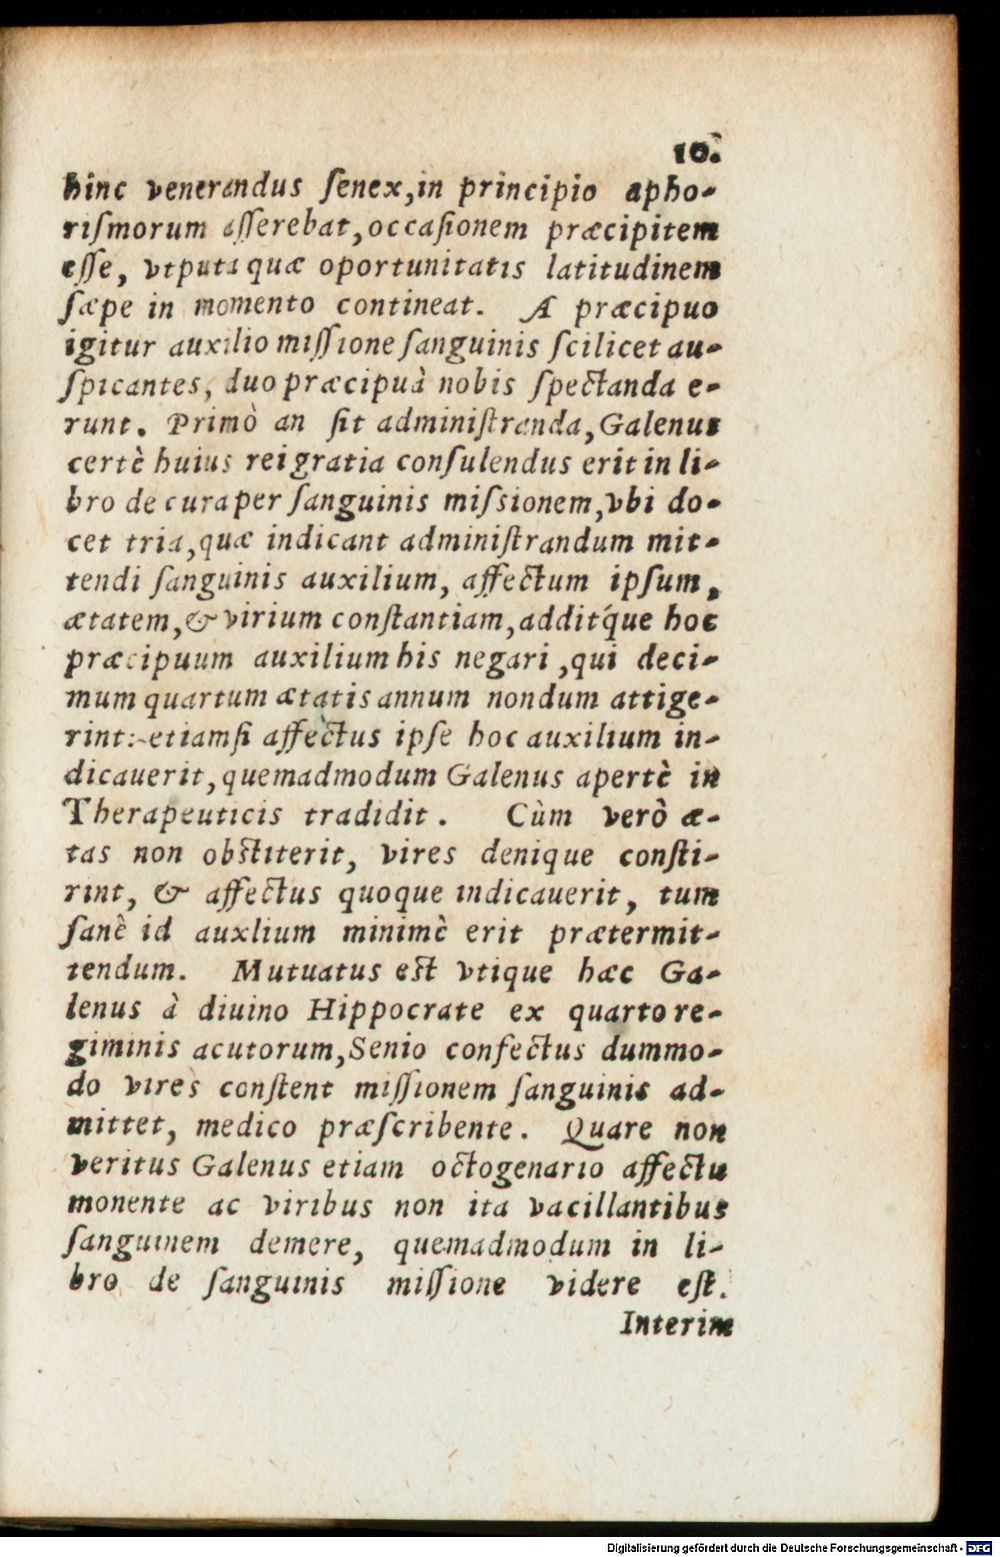 10.
hinc venerandus ſenex,in principio apho-
riſmorum aſſerebat,occaſionem præcipitem
eſſe, vtputa quæ oportunitatis latitudinem
ſæpe in momento contineat. A præcipuo
igitur auxilio miſſione ſanguinis ſcilicet au-
ſpicantes, duo præcipuà nobis ſpectanda e-
runt. Primò an ſit adminiſtranda,Galenus
certè huius rei gratia conſulendus erit in li-
bro de cura per ſanguinis miſsionem,vbi do-
cet tria,quæ indicant adminiſtrandum mit-
tendi ſanguinis auxilium, affectum ipſum,
ætatem,& virium conſtantiam,addit́que hoc
præcipuum auxilium his negari ,qui deci-
mum quartum ætatis annum nondum attige-
rint: etiamſi affectus ipſe hoc auxilium in-
dicauerit,quemadmodum Galenus apertè in
Therapeuticis tradidit. Cùm verò æ-
tas non obſtiterit, vires denique conſti-
rint, & affectus quoque indicauerit, tum
ſanè id auxlium minimè erit prætermit-
tendum. Mutuatus eſt vtique hæc Ga-
lenus à diuino Hippocrate ex quarto re-
giminis acutorum,Senio confectus dummo-
do vires conſtent miſſionem ſanguinis ad-
mittet, medico præſcribente. Quare non
veritus Galenus etiam octogenario affectu
monente ac viribus non ita vacillantibus
ſanguinem demere, quemadmodum in li-
bro de ſanguinis miſſione videre eſt.
Interim
Digitalisierung gefördert durch die Deutsche Forschungsgemeinschaft - DFG